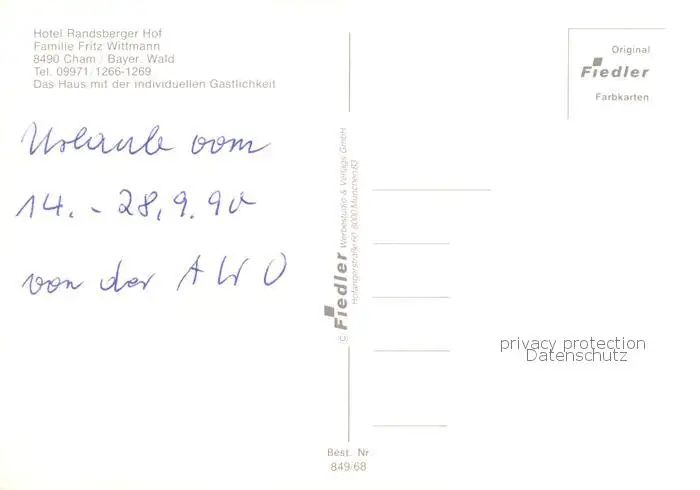 Hotel Randsberger Hof
Familie Fritz Wittmann
8490 Cham / Bayer. Wald
Tel. 09971/1266-1269
Das Haus mit der individuellen Gastlichkeit
Original
Fiedler
Farbkarten
Urlaub vom
14. - 28.9.90
von der AWO
© Fiedler Werbestudio & Verlags GmbH
Hofangerstraße 60 8000 München 83
privacy protection
Datenschutz
Best. Nr.
849/68